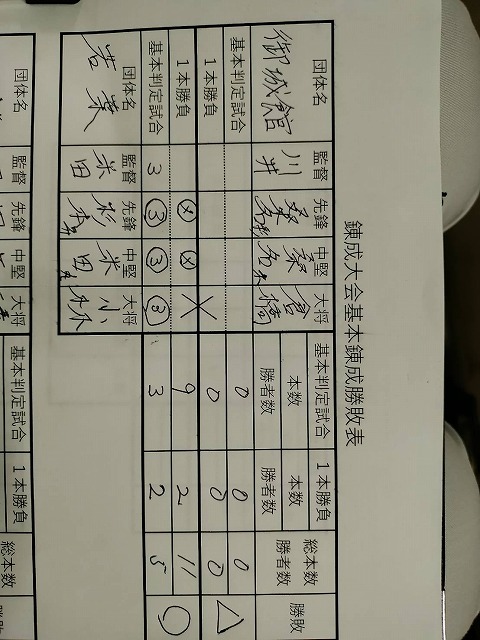 錬成大会基本錬成勝敗表
団体名 監督 先鋒 中堅 大将 基本判定試合 1本勝負 総本数 勝敗
本数 本数 勝者数
勝者数 勝者数
御城館 川井 桑名 桑名 倉橋
基本判定試合 0 0 0 △
1本勝負 0 0 0
1本勝負 ⊗ ⊗ × 9 2 11 ○
基本判定試合 3 ③ ③ ③ 3 2 5
団体名 監督 先鋒 中堅 大将
若葉 米田 杉 米田 小林
団体名 監督 先鋒 中堅 大将 基本判定試合 1本勝負 総本数